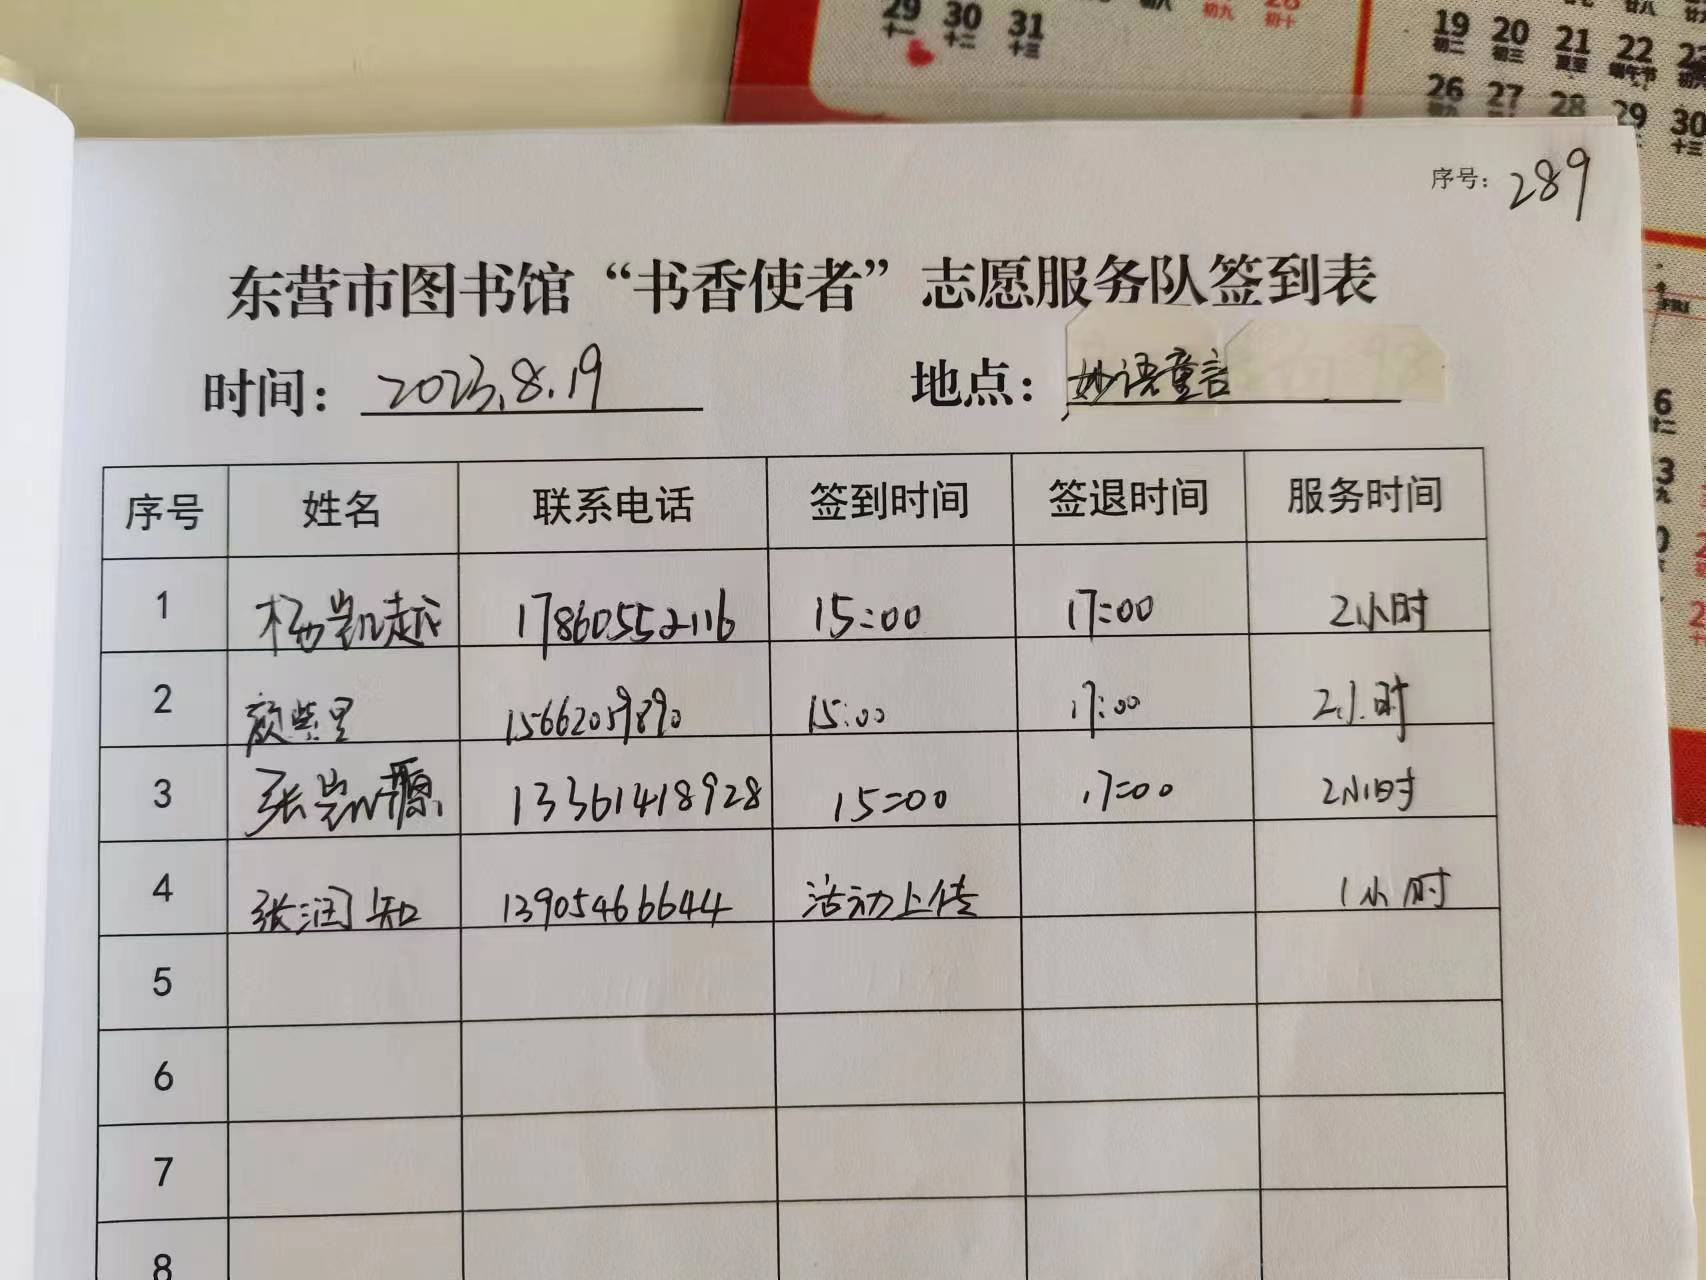 29 30 31
十一 十二 十三
初八 初九 初十
19 20 21 22
初二 初三 夏至 端午节
26 27 28 29 30
十三
序号：289
东营市图书馆“书香使者”志愿服务队签到表
时间：2023.8.19 地点：妙语童言
序号 姓名 联系电话 签到时间 签退时间 服务时间
1 杨凯越 17860552116 15:00 17:00 2小时
2 颜紫里 15662059890 15:00 17:00 2小时
3 张凯源 13361418928 15:00 17:00 2小时
4 张润知 13905466644 活动上传 1小时
5
6
7
8
FRI